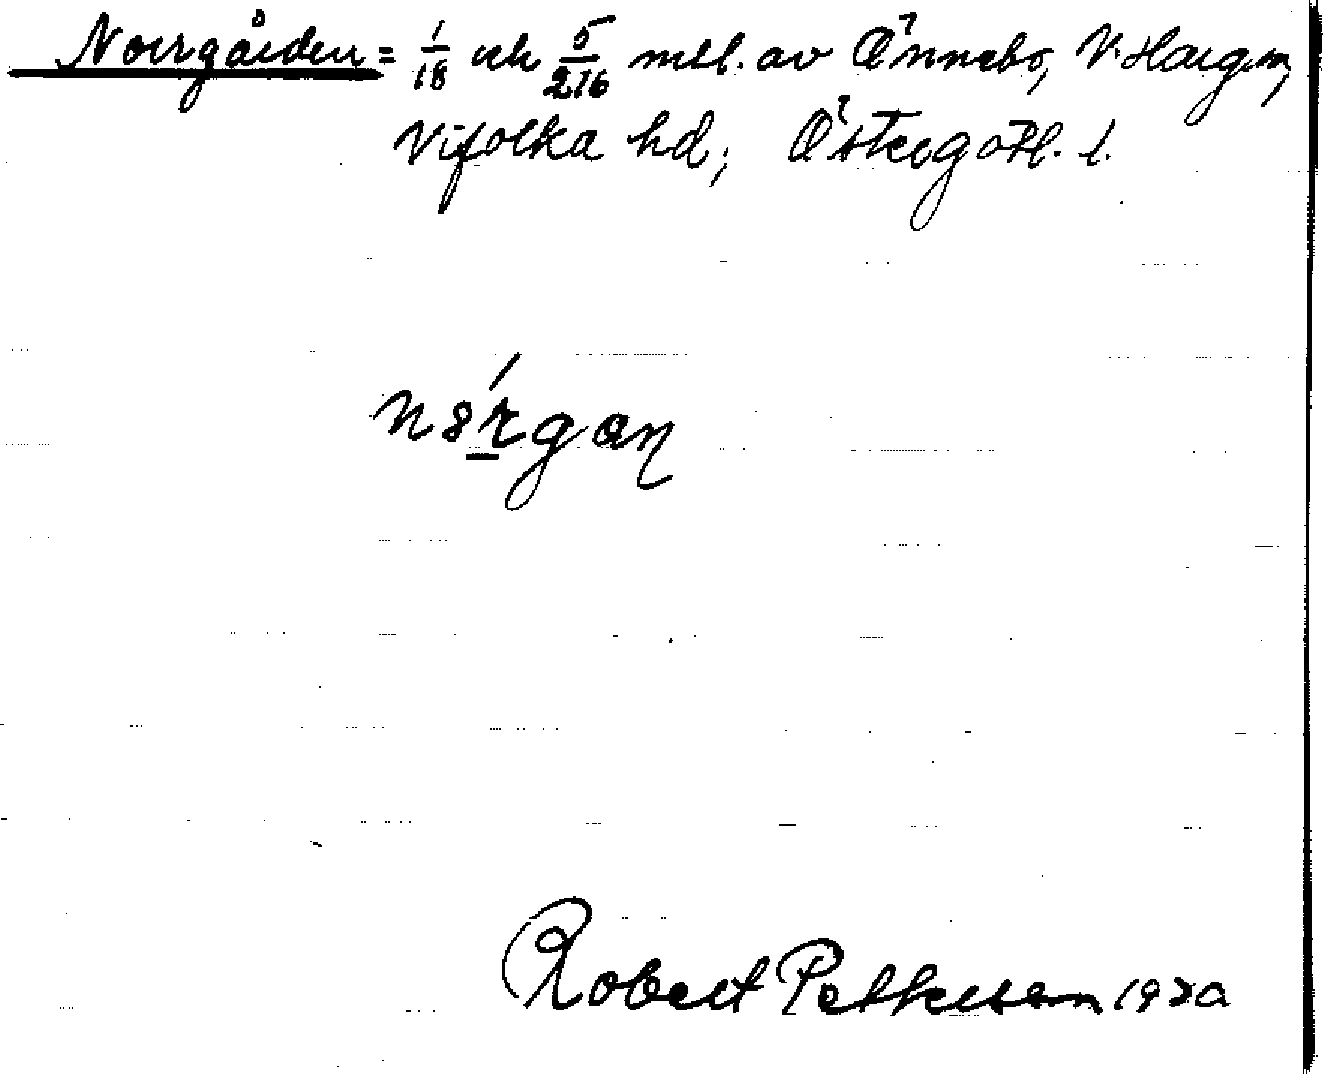 Norrgården = 1/18 och 5/216 mtl. av Önnebo, V. Harg sn,
Vifolka hd, Östergötl. l.
Robert Petterson 1920